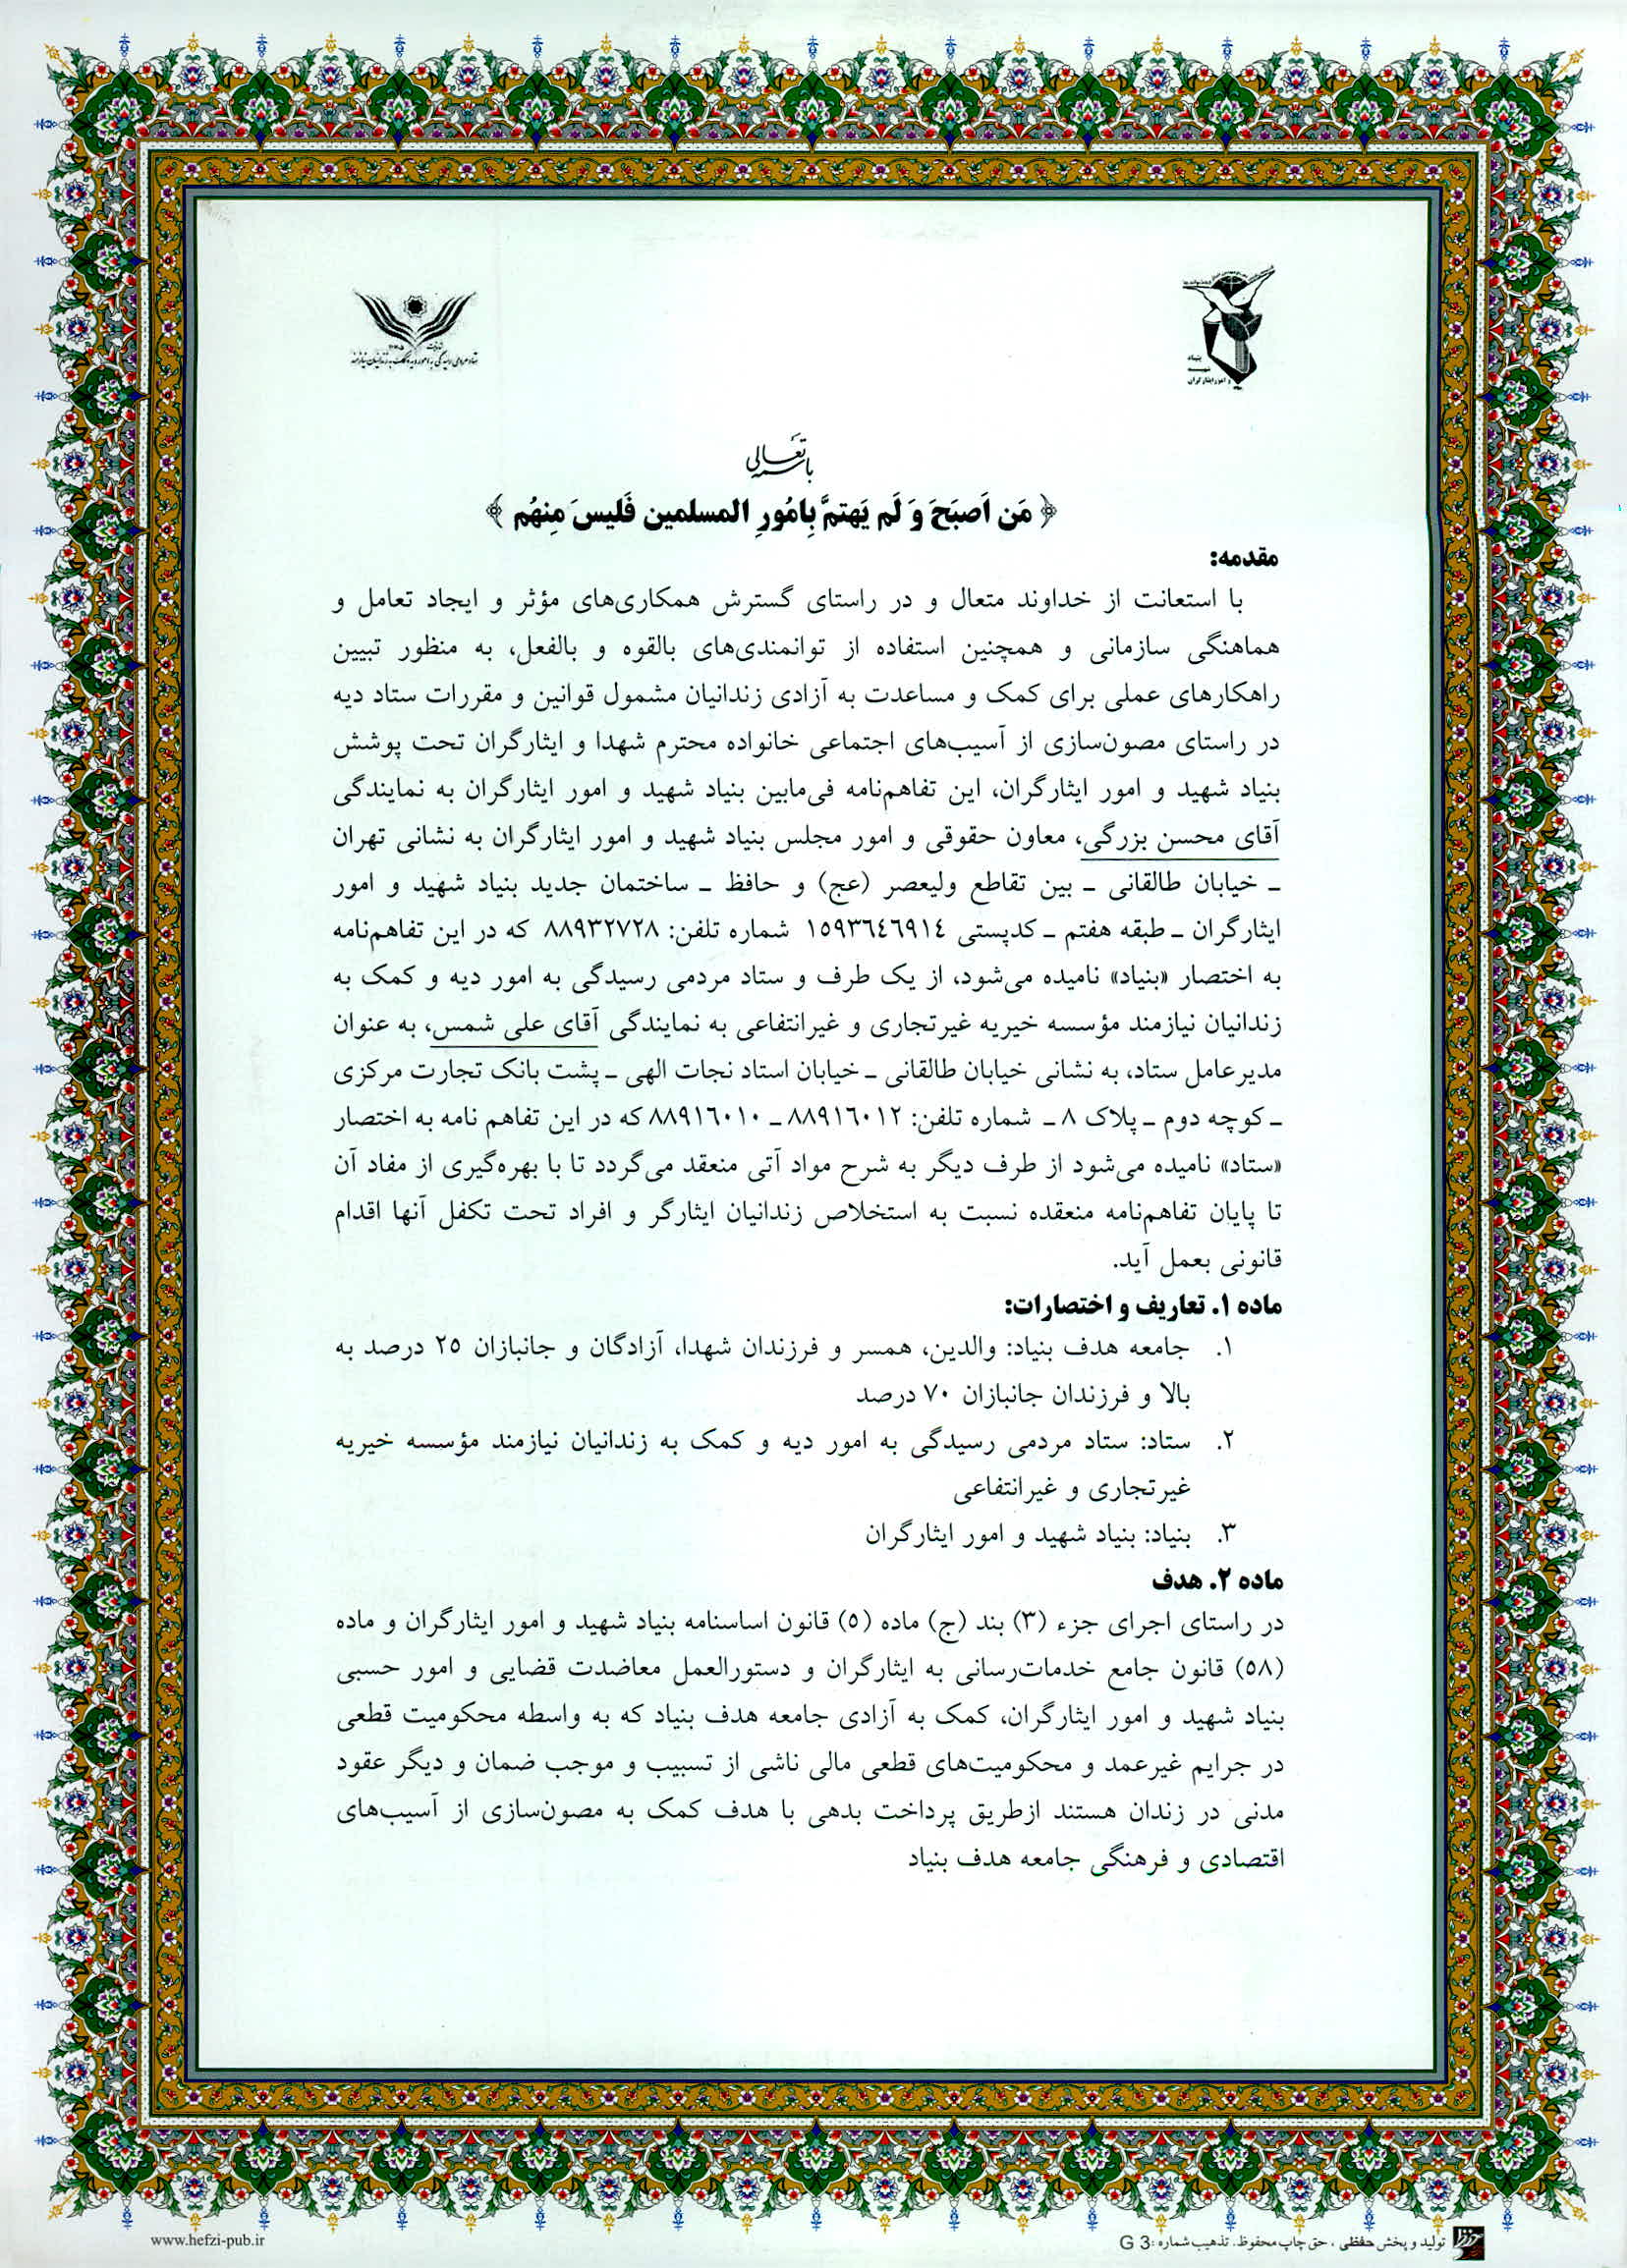 بنیاد
شهید
و امور ایثارگران
ستاد مردمی رسیدگی به امور دیه و کمک به زندانیان نیازمند
باسمه تعالی
﴿ مَن اَصبَحَ وَ لَم یَهتمَّ بِامُورِ المسلمین فَلیسَ مِنهُم ﴾
مقدمه:
با استعانت از خداوند متعال و در راستای گسترش همکاری‌های مؤثر و ایجاد تعامل و
هماهنگی سازمانی و همچنین استفاده از توانمندی‌های بالقوه و بالفعل، به منظور تبیین
راهکارهای عملی برای کمک و مساعدت به آزادی زندانیان مشمول قوانین و مقررات ستاد دیه
در راستای مصون‌سازی از آسیب‌های اجتماعی خانواده محترم شهدا و ایثارگران تحت پوشش
بنیاد شهید و امور ایثارگران، این تفاهم‌نامه فی‌مابین بنیاد شهید و امور ایثارگران به نمایندگی
آقای محسن بزرگی، معاون حقوقی و امور مجلس بنیاد شهید و امور ایثارگران به نشانی تهران
ـ خیابان طالقانی ـ بین تقاطع ولیعصر (عج) و حافظ ـ ساختمان جدید بنیاد شهید و امور
ایثارگران ـ طبقه هفتم ـ کدپستی ١٥٩٣٦٤٦٩١٤ شماره تلفن: ٨٨٩٣٢٧٢٨ که در این تفاهم‌نامه
به اختصار «بنیاد» نامیده می‌شود، از یک طرف و ستاد مردمی رسیدگی به امور دیه و کمک به
زندانیان نیازمند مؤسسه خیریه غیرتجاری و غیرانتفاعی به نمایندگی آقای علی شمس، به عنوان
مدیرعامل ستاد، به نشانی خیابان طالقانی ـ خیابان استاد نجات الهی ـ پشت بانک تجارت مرکزی
ـ کوچه دوم ـ پلاک ٨ ـ شماره تلفن: ٨٨٩١٦٠١٢ ـ ٨٨٩١٦٠١٠ که در این تفاهم نامه به اختصار
«ستاد» نامیده می‌شود از طرف دیگر به شرح مواد آتی منعقد می‌گردد تا با بهره‌گیری از مفاد آن
تا پایان تفاهم‌نامه منعقده نسبت به استخلاص زندانیان ایثارگر و افراد تحت تکفل آنها اقدام
قانونی بعمل آید.
ماده ١. تعاریف و اختصارات:
١. جامعه هدف بنیاد: والدین، همسر و فرزندان شهدا، آزادگان و جانبازان ٢٥ درصد به
بالا و فرزندان جانبازان ٧٠ درصد
٢. ستاد: ستاد مردمی رسیدگی به امور دیه و کمک به زندانیان نیازمند مؤسسه خیریه
غیرتجاری و غیرانتفاعی
٣. بنیاد: بنیاد شهید و امور ایثارگران
ماده ٢. هدف
در راستای اجرای جزء (٣) بند (ج) ماده (٥) قانون اساسنامه بنیاد شهید و امور ایثارگران و ماده
(٥٨) قانون جامع خدمات‌رسانی به ایثارگران و دستورالعمل معاضدت قضایی و امور حسبی
بنیاد شهید و امور ایثارگران، کمک به آزادی جامعه هدف بنیاد که به واسطه محکومیت قطعی
در جرایم غیرعمد و محکومیت‌های قطعی مالی ناشی از تسبیب و موجب ضمان و دیگر عقود
مدنی در زندان هستند ازطریق پرداخت بدهی با هدف کمک به مصون‌سازی از آسیب‌های
اقتصادی و فرهنگی جامعه هدف بنیاد
تولید و پخش حفظی ، حق چاپ محفوظ. تذهیب شماره: G 3
www.hefzi-pub.ir